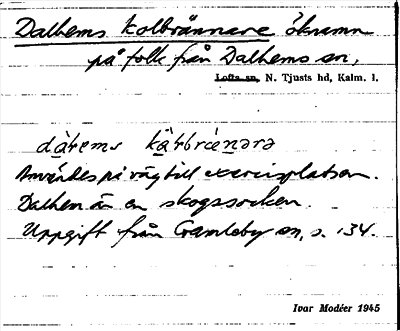 Dalhems kolbrännare öknamn
på folk från Dalhems sn,
Lofta sn, N. Tjusts hd, Kalm. l.
Användes på väg till exercisplatsen.
Dalhem är en skogssocken.
Uppgift från Gamleby sn, s. 134.
Ivar Modéer 1945